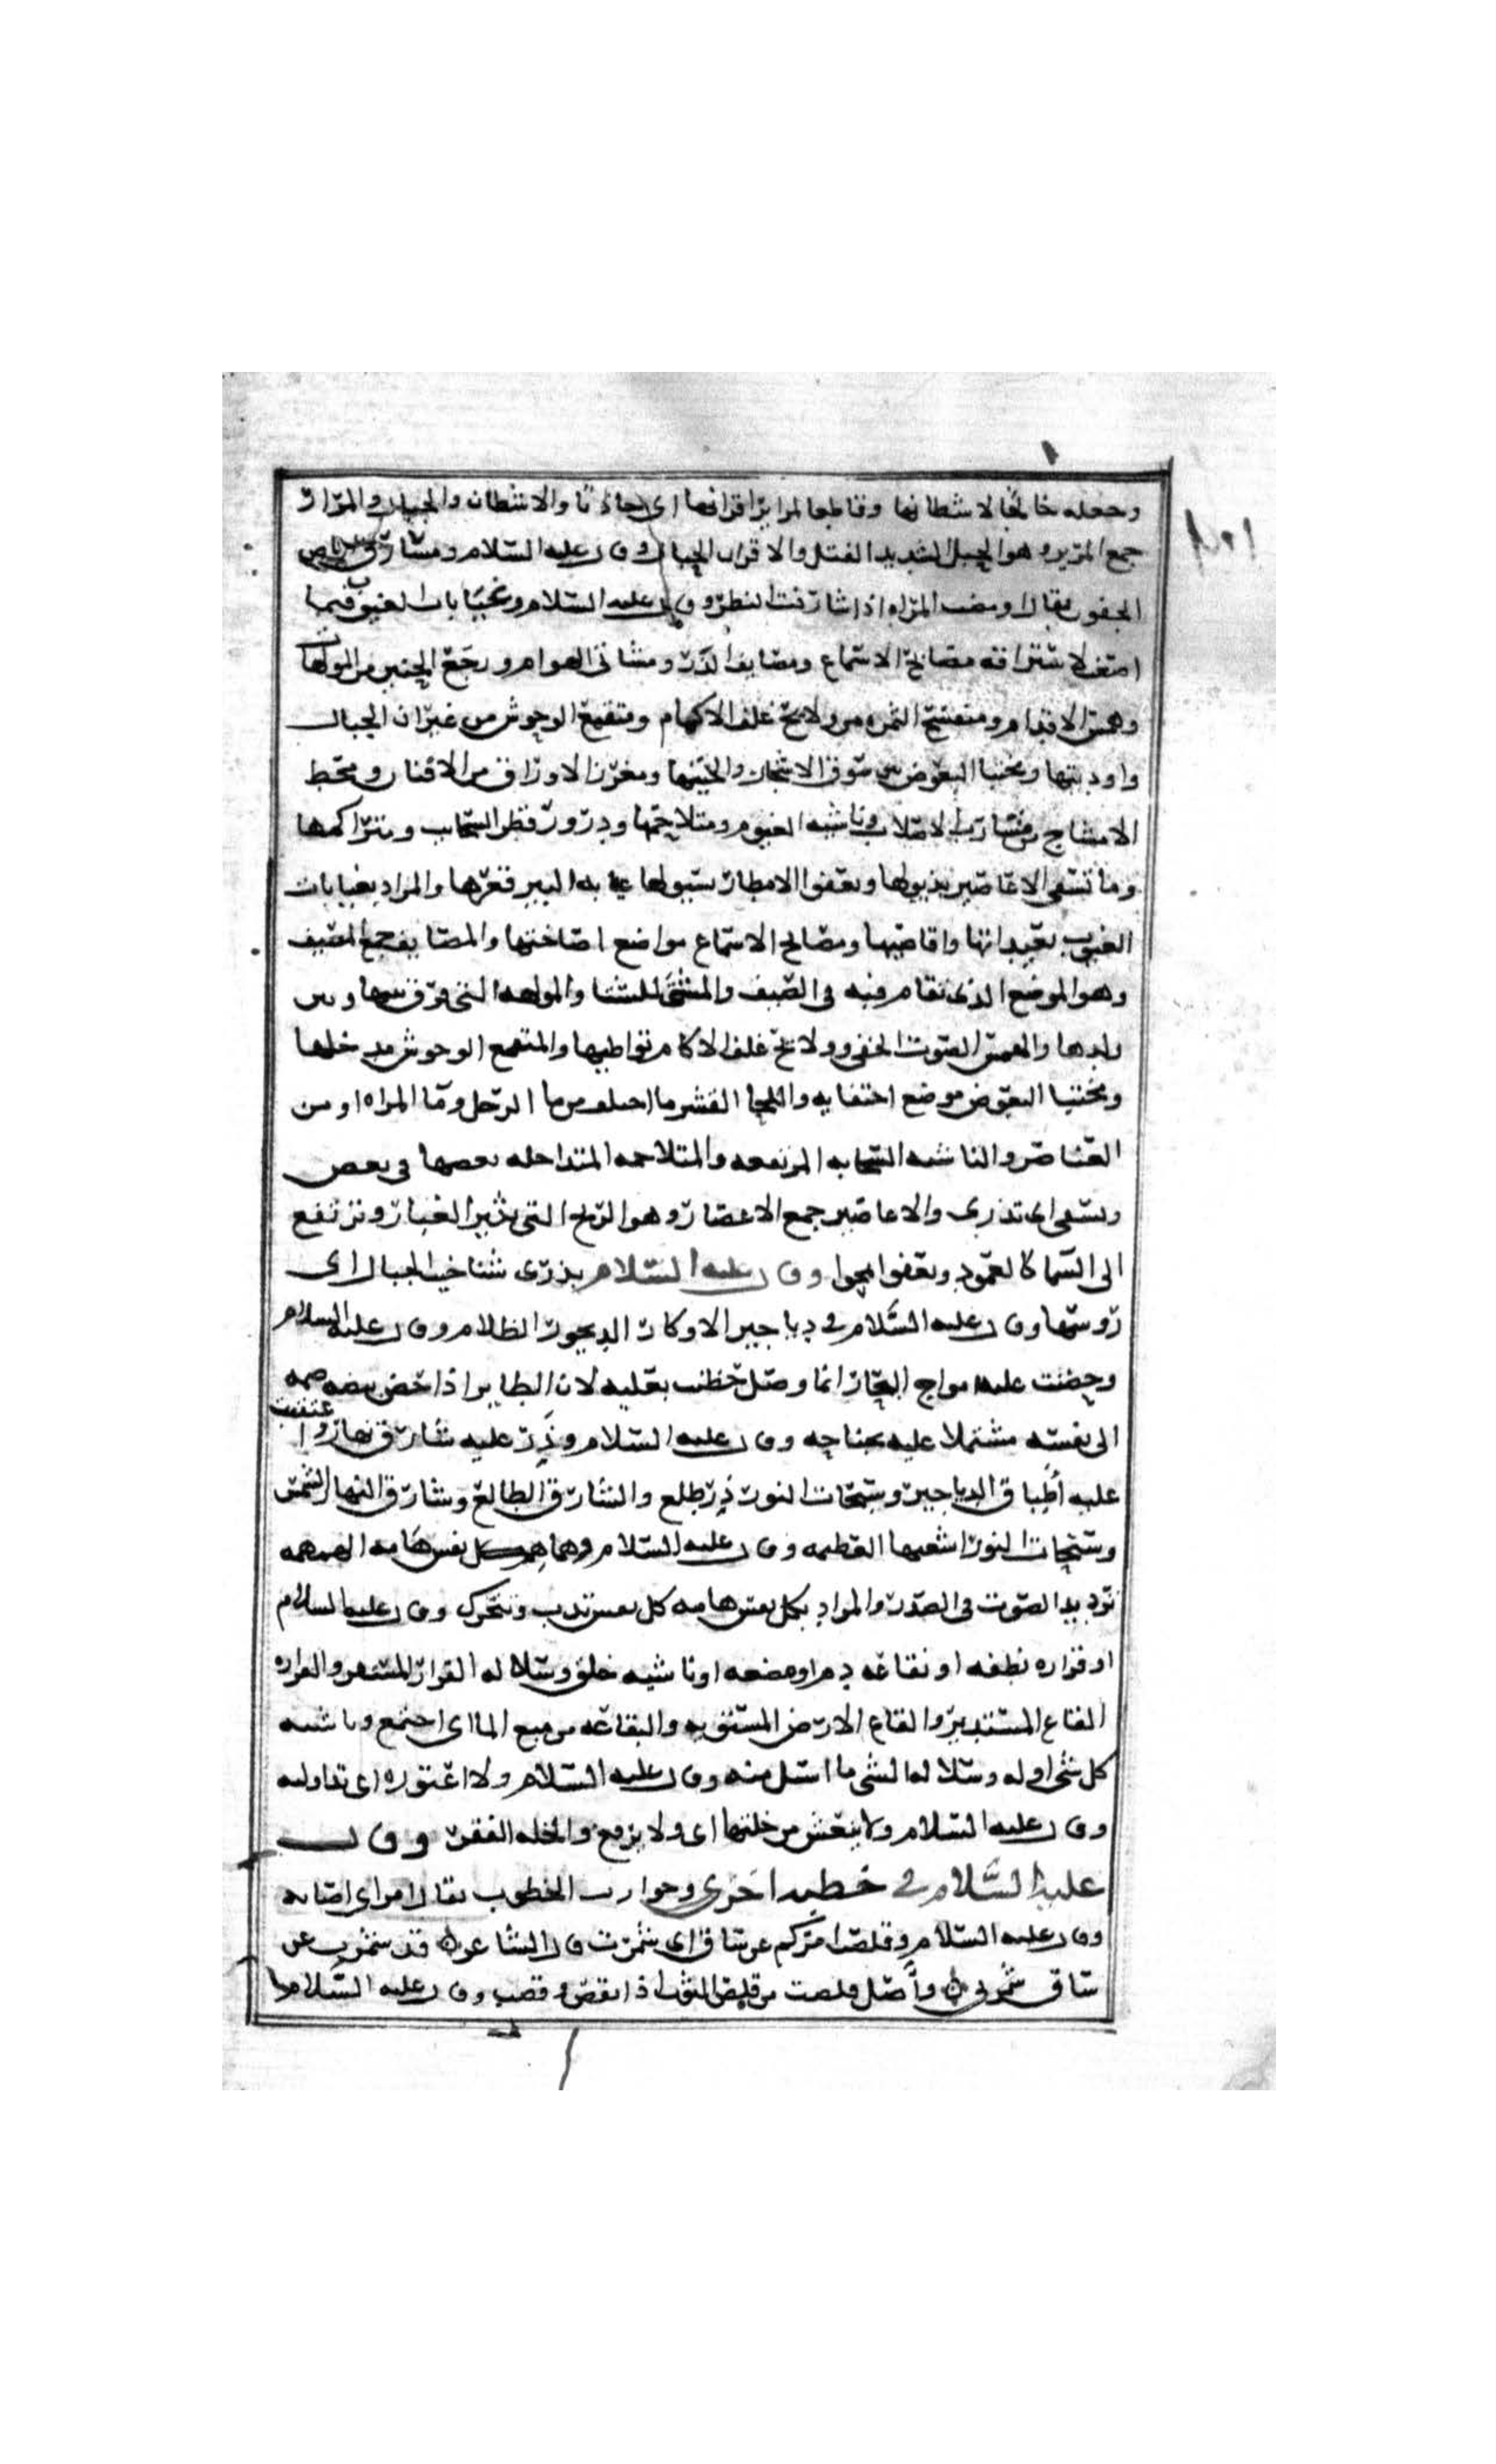 وجعله خالجا لاشطانها وقاطعا لمراير اقرانها اى جاذبا والاشطان والحبال والمراير
جمع المرير وهو الحبل الشديد الفتل والاقران الحبال وقال عليه السلام ومسارق ايماض
الجفون يقال اومضت المراه اذا سارقت النظر وقال عليه السلام وغيابات الغيوب فيما
اصغت لاستراقه مصايخ الاسماع ومصايف الذر ومشاتى الهوام ورجع الحنين من المولهات
وهمس الاقدام ومنفسح الثمره من ولايج غلف الاكمام ومنقمع الوحوش من غيران الجبال
واوديتها ومختبا البعوض بين سوق الاشجار والحيتها ومغرز الاوراق من الافنان ومحط
الامشاج من مسارب الاصلاب وناشيه الغيوم ومتلاحمها ودرور قطر السحاب ومتراكمها
وما تسفى الاعاصير بذيولها وتعفوا الامطار بسيولها
والمراد بغيابات
الغيوب بعيداتها واقاصيها ومصايخ الاسماع مواضع اصاختها والمصايف جمع المصيف
وهو الموضع الذى تقام فيه فى الصيف والمشتى للشتا والمولهه التى فرق بينها وبين
ولدها والهمس الصوت الخفى وولايج غلف الاكمام بواطنها والمنقمع الوحوش مدخلها
ومختبا البعوض موضع اختفايه واللحا القشر ما اختلف من ما الرجل وما المراه او من
العناصر والناشيه السحابه المرتفعه والمتلاحمه المتداخله بعضها فى بعض
وتسفى اى تذرى والاعاصير جمع الاعصار وهو الريح التى تثير الغبار وترتفع
الى السما كالعمود وتعفوا تمحوا وقال عليه السلام بذرى شناخيب الجبال اى
روسها وقال عليه السلام فى دياجير الاوكار الديجور الظلام وقال عليه السلام
وحضنت عليه امواج البحار انما وصل حضنت بعليه لان الطاير اذا حضن بيضه ضمه
الى نفسه مشتملا عليه بجناحه وقال عليه السلام وذر عليه شارق نهار وا عتقبت
عليه اطباق الدياجير وسبحات النور ذر طلع والشارق الطالع وشارق النهار الشمس
وسبحات النور اشعتها العظيمه وقال عليه السلام وهماهم كل نفس هامه الهمهمه
ترديد الصوت فى الصدر والمراد بكل نفس هامه كل نفس تدب وتتحرك وقال عليه السلام
او قراره نطفه او نقاعه دم او مضغه او ناشيه خلق وسلاله القرار المستقر والقراره
القاع المستدير والقاع الارض المستويه والنقاعه من نقع الما اى اجتمع وناشيه
كل شى اوله وسلاله الشى ما استل منه وقال عليه السلام ولا اعتوره اى تداولته
وقال عليه السلام ولا ينعش من خلتها اى ولا يرفع والخله الفقر وقال
عليه السلام فى خطبه اخرى وحوازب الخطوب يقال امر اى اصابه
وقال عليه السلام وقلصت حربكم عن ساق اى شمرت قال الشاعر قد شمرت عن
ساق شمرى واصل قلصت من قلص الثوب اذا نقص وقصر وقال عليه السلام